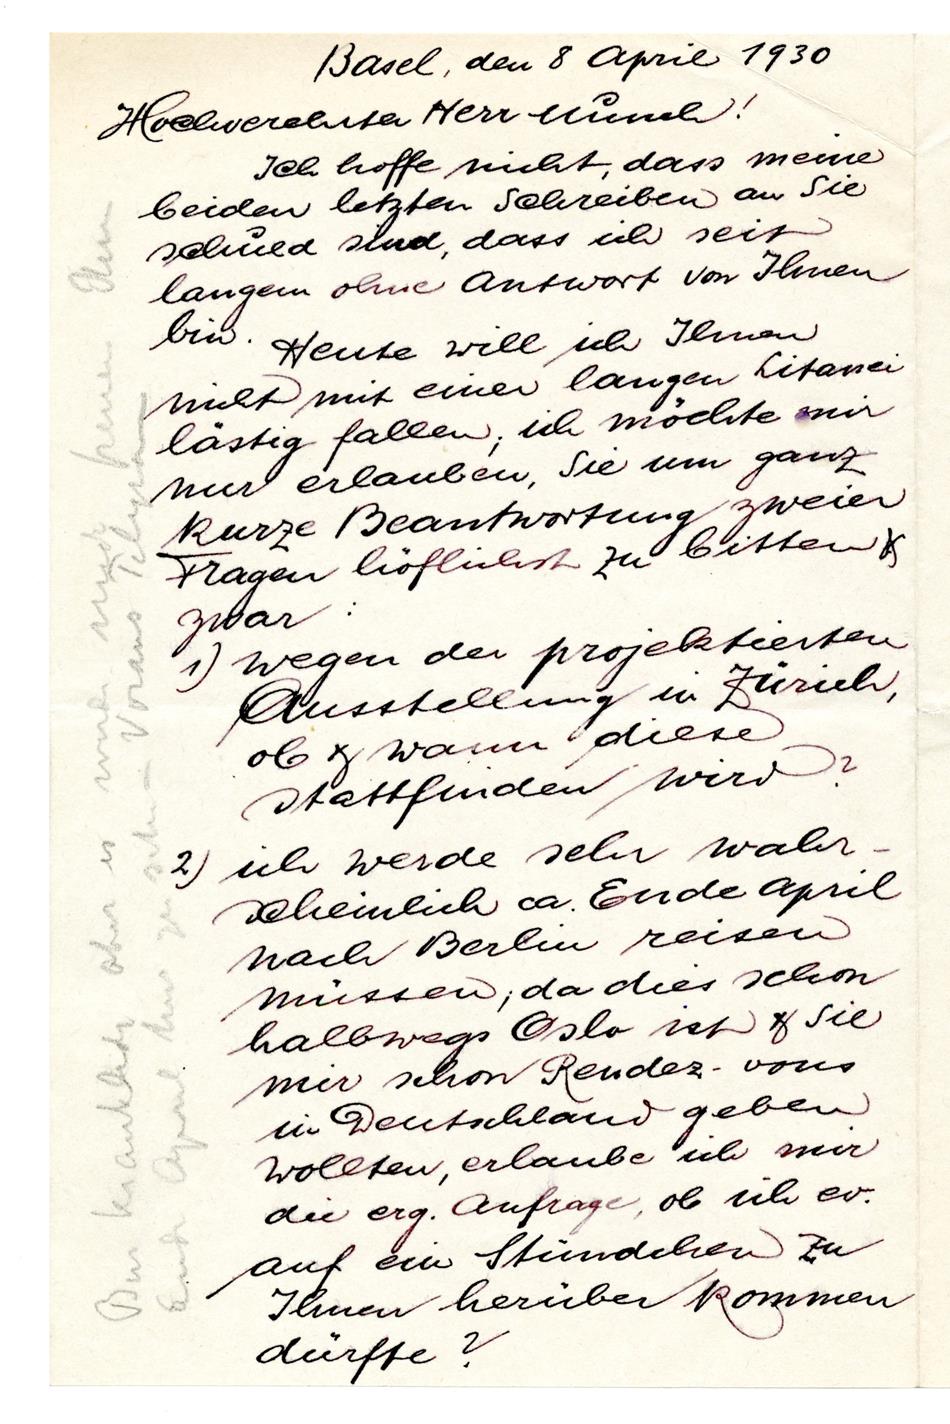 Basel, den 8 April 1930
Hochverehrter Herr Munch!
Ich hoffe nicht, dass meine
beiden letzten Schreiben an Sie
schuld sind, dass ich seit
langem ohne Antwort von Ihnen
bin. Heute will ich Ihnen
nicht mit einer langen Litanei
lästig fallen; ich möchte mir
nur erlauben, Sie um ganz
kurze Beantwortung zweier
Fragen höflichst zu bitten &
zwar:
1) wegen der projektierten
Ausstellung in Zürich,
ob & wann diese
stattfinden wird?
2) ich werde sehr wahr-
scheinlich ca. Ende April
nach Berlin reisen
müssen; da dies schon
halbwegs Oslo ist & Sie
mir schon Rendez-vous
in Deutschland geben
wollten, erlaube ich mir
die erg. Anfrage, ob ich ev.
auf ein Stündchen zu
Ihnen herüber kommen
dürfte?
Bin krank aber es wird mich freuen Ihnen
Ende April hier zu sehen – Voraus Telegram